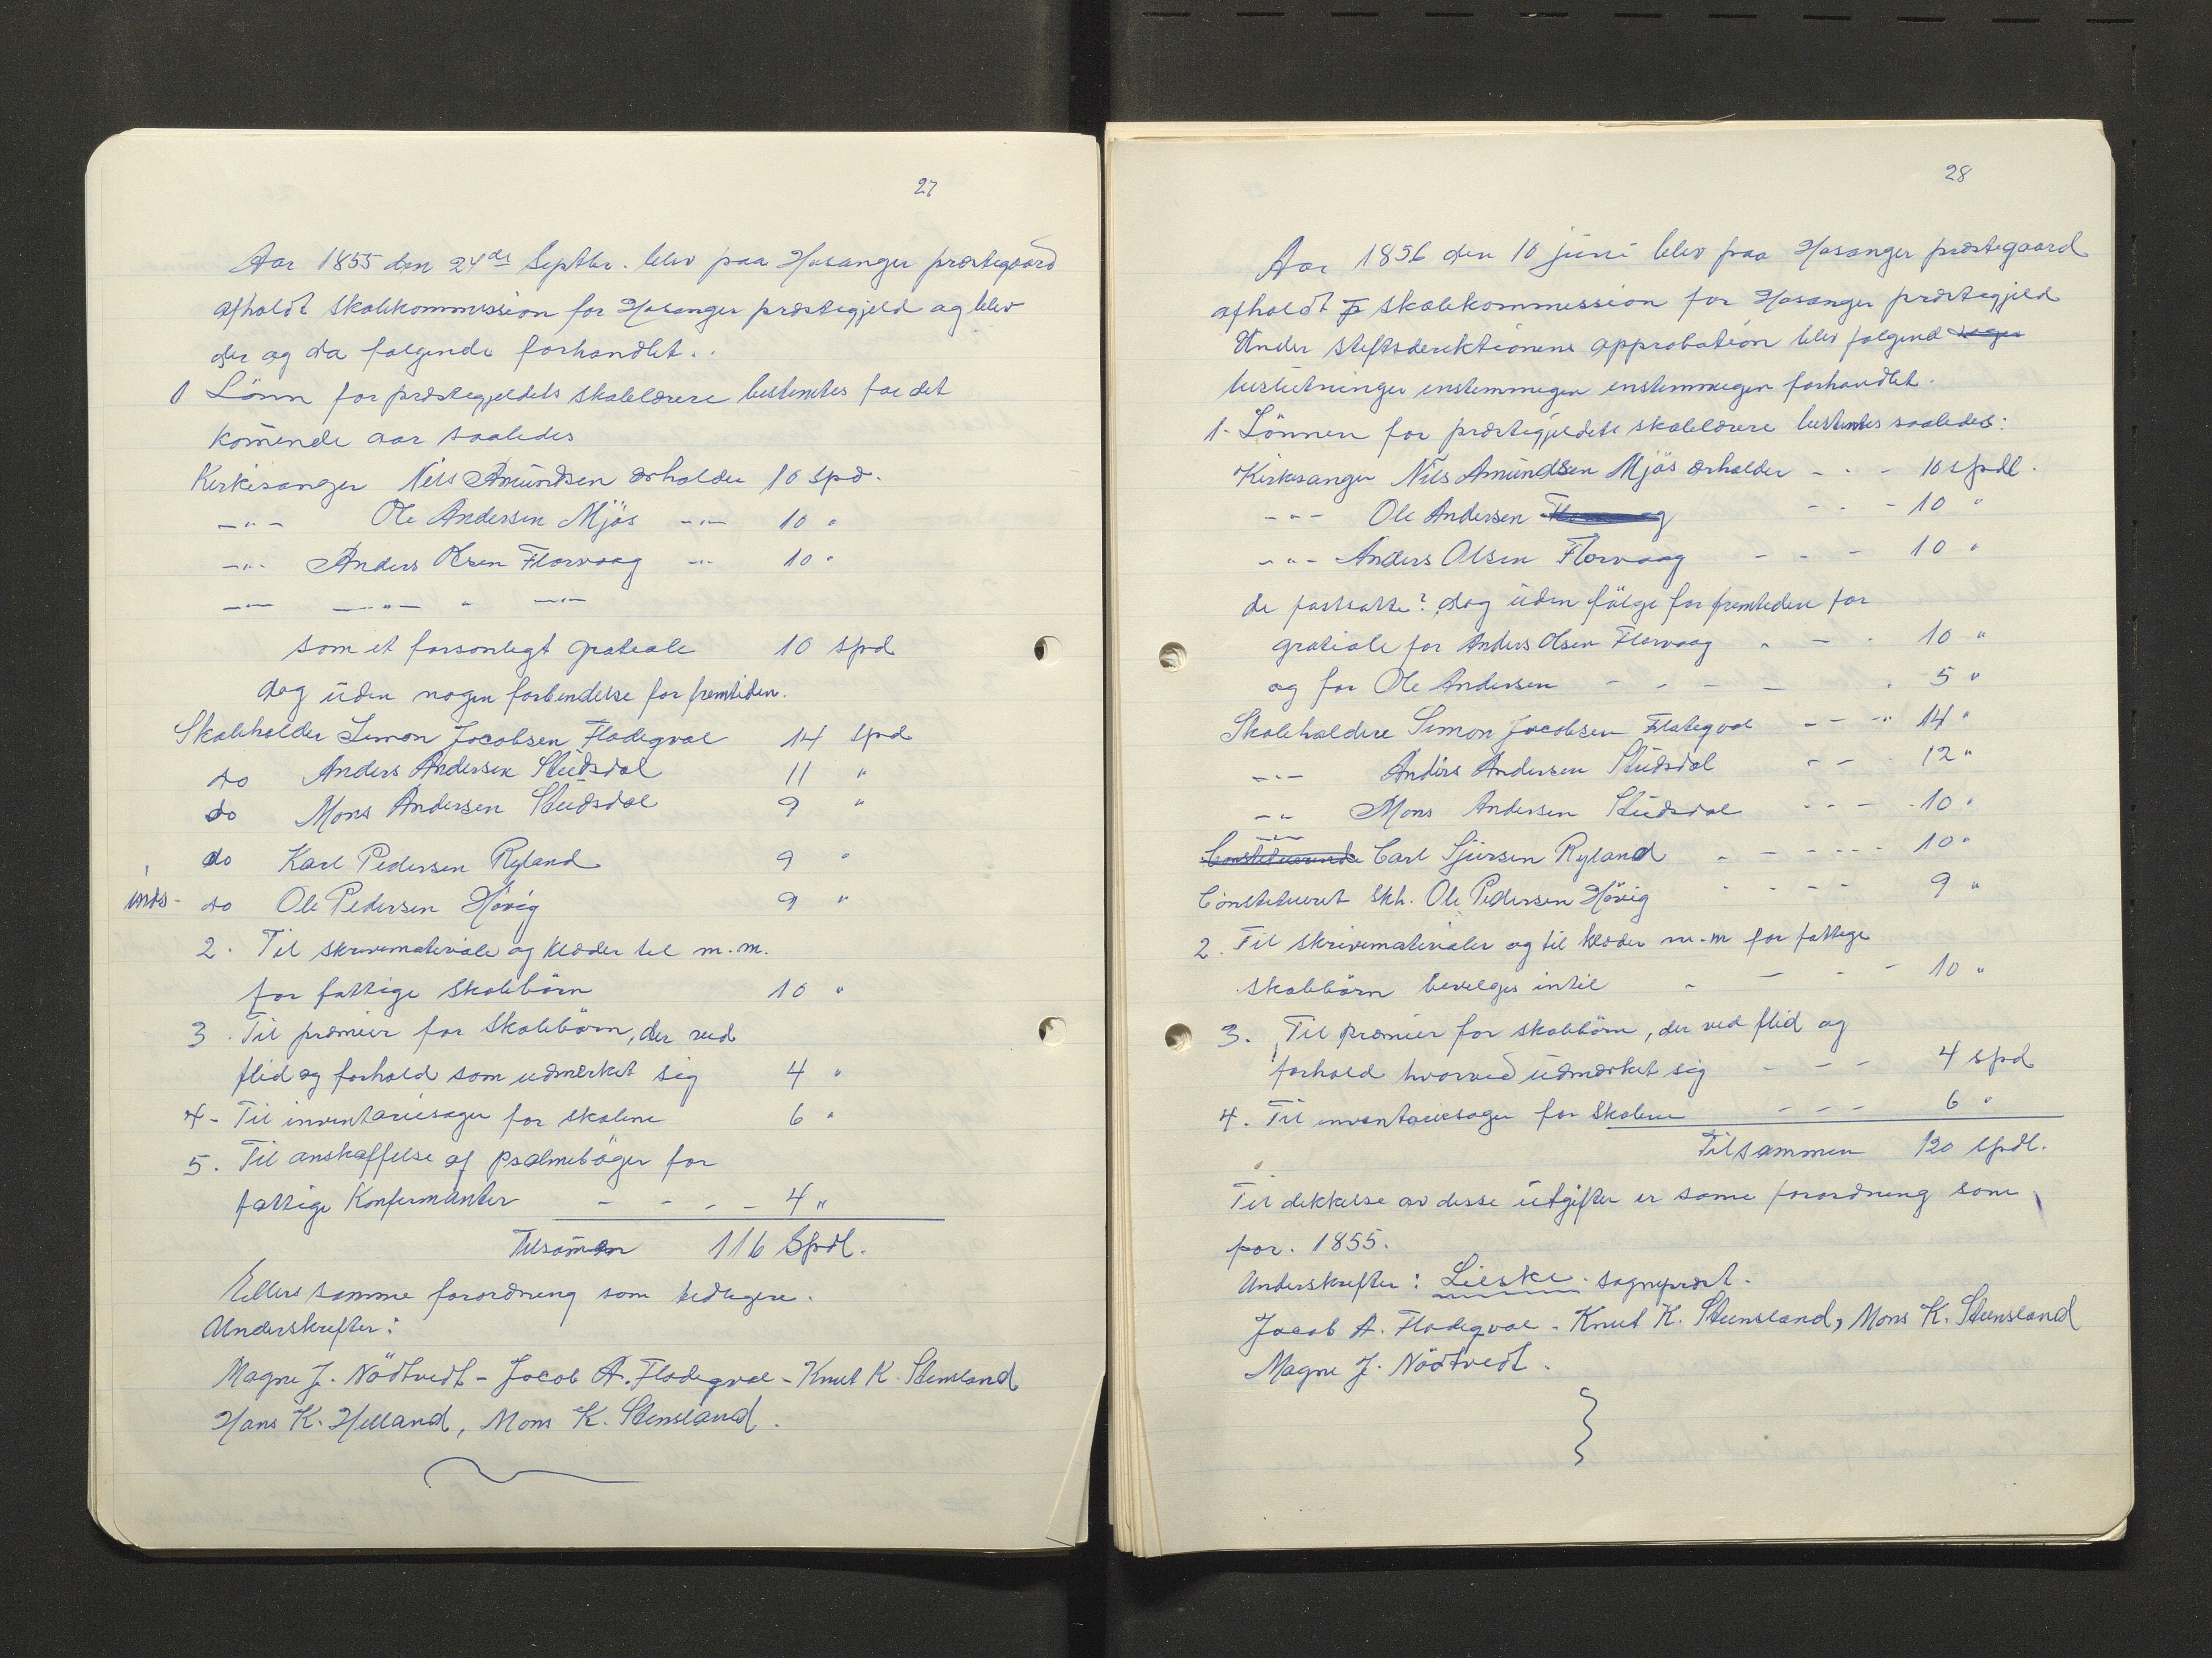 27
Aar 1855 den 24de Septbr. blev paa Hosanger præstegaard
afholdt skolekommission for Hosanger præstegjeld og blev
der og da følgende forhandlet..
1 Lönn for præstegjeldets skolelærere bestemtes for det
komende aar saaledes
Kirkesanger Nils Amundsen erholder 10 spd.
-"- Ole Andersen Mjös -"- 10 "
-"- Anders Olsen Florvaag -"- 10 "
-"- -"- " -"-
som et personligt gratiale 10 spd
dog uden nogen forbindelse for fremtiden.
Skoleholder Simon Jacobsen Fladeqval 14 spd
do Anders Andersen Studsdal 11 "
do Mons Andersen Studsdal 9 "
do Karl Pedersen Ryland 9 "
do Ole Pedersen Hövig 9 "
2. Til skrivematriale og klæder til m.m.
for fattige skolebörn 10 "
3. Til premier for skolebörn, der ved
flid og forhold som udmerket sig 4 "
4- Til inventariesager for skolene 6 "
5. Til anskaffelse af psalmeböger for
fattige Konfirmanter - - - - 4 "
Tilsamen 116 Spdl.
Ellers samme forordning som tidligere.
Underskrifter:
Magne J. Nödtvedt - Jacob A. Fladeqval - Knut K. Stensland
Hans K. Helland, Mons K. Stensland.
28
Aar 1856 den 10 juni blev paa Hosanger præstegaard
afholdt skolekommession for Hosanger præstegjeld
Under stiftsderektionens approbation blev følgend
beslutninger enstemmigen enstemmigen forhandlet.
1- Lönnen for præstegjeldets skolelærere bestemtes saaledes:
Kirkesanger Nils Amundsen Mjös erholder - - - 10 spdl.
-"- Ole Andersen - - - 10 "
-"- Anders Olsen Florvaag - - - 10 "
de fastsatte? dog uden fölge for fremtiden for
gratiale for Anders Olsen Florvaag - - - 10 "
og for Ole Andersen - - - - 5 "
Skoleholdere Simon Jacobsen Flateqval - - -" 14 "
-"- Anders Andersen Studsdal - - - 12 "
-"- Mons Andersen Studsdal - - - 10 "
-"-
Constituerende Carl Sjursen Ryland - - - - - 10 "
Constitueret Skh. Ole Pedersen Hövig - - - - 9 "
2. Til skrivematerialer og til klæder m.m for fattige
skolebörn bevilges intil - - - - 10 "
3. Til premier for skolebörn, der ved flid og
forhold hvorved udmærket sig - - - 4 spd
4. Til inventariesager for Skolene - - - 6 "
Tilsammen 120 spdl.
Til dekkelse av desse utgifter er same forordning som
for. 1855.
Underskrifter: Lieske. sogneprest.
Jacob A. Fladeqval - Knut K. Steensland, Mons K. Steensland
Magne J. Nödtvedt.